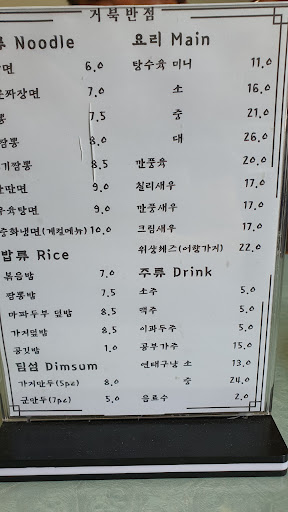 거북반점
Noodle
6.0
7.0
7.5
짬뽕 8.0
기짬뽕 8.5
9.0
육탕면 9.0
중화냉면(계절메뉴) 10.0
밥류 Rice
볶음밥 7.0
짬뽕밥 7.5
마파두부 덮밥 8.5
가지덮밥 8.5
공깃밥 1.0
딤섬 Dimsum
가지만두(5pcs) 8.0
군만두(7pcs) 5.0
요리 Main
탕수육 미니 11.0
소 16.0
중 21.0
대 26.0
깐풍육 20.0
칠리새우 17.0
깐풍새우 17.0
크림새우 17.0
위샹체즈(어향가지) 22.0
주류 Drink
소주 5.0
맥주 5.0
이과두주 5.0
공부가주 15.0
연태구냥 소 13.0
중 24.0
음료수 2.0